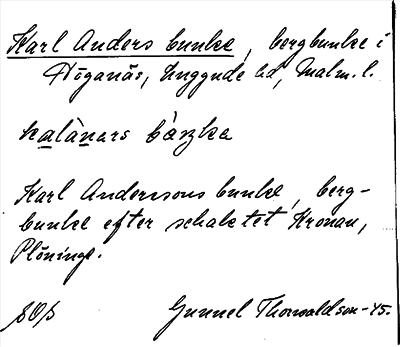 Karl Anders bunke, bergbunke i
Höganäs, Luggude hd, Malm. l.
kalànars bàṣka
Karl Anderssons bunke, berg-
bunke efter schaktet Kronan,
Plöninge.
Gunnel Thorwaldson -45.